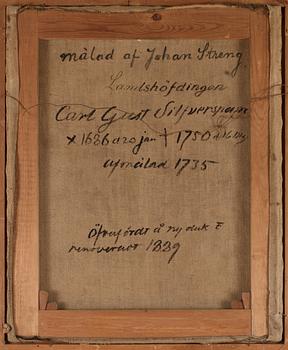 målad af Johan Streng.
Landshöfdingen
Carl Gust Silfversparre
× 1686 d 20 jan † 1750
Afmålad 1735
öfverfördt å ny duk &
renoveradt 1889